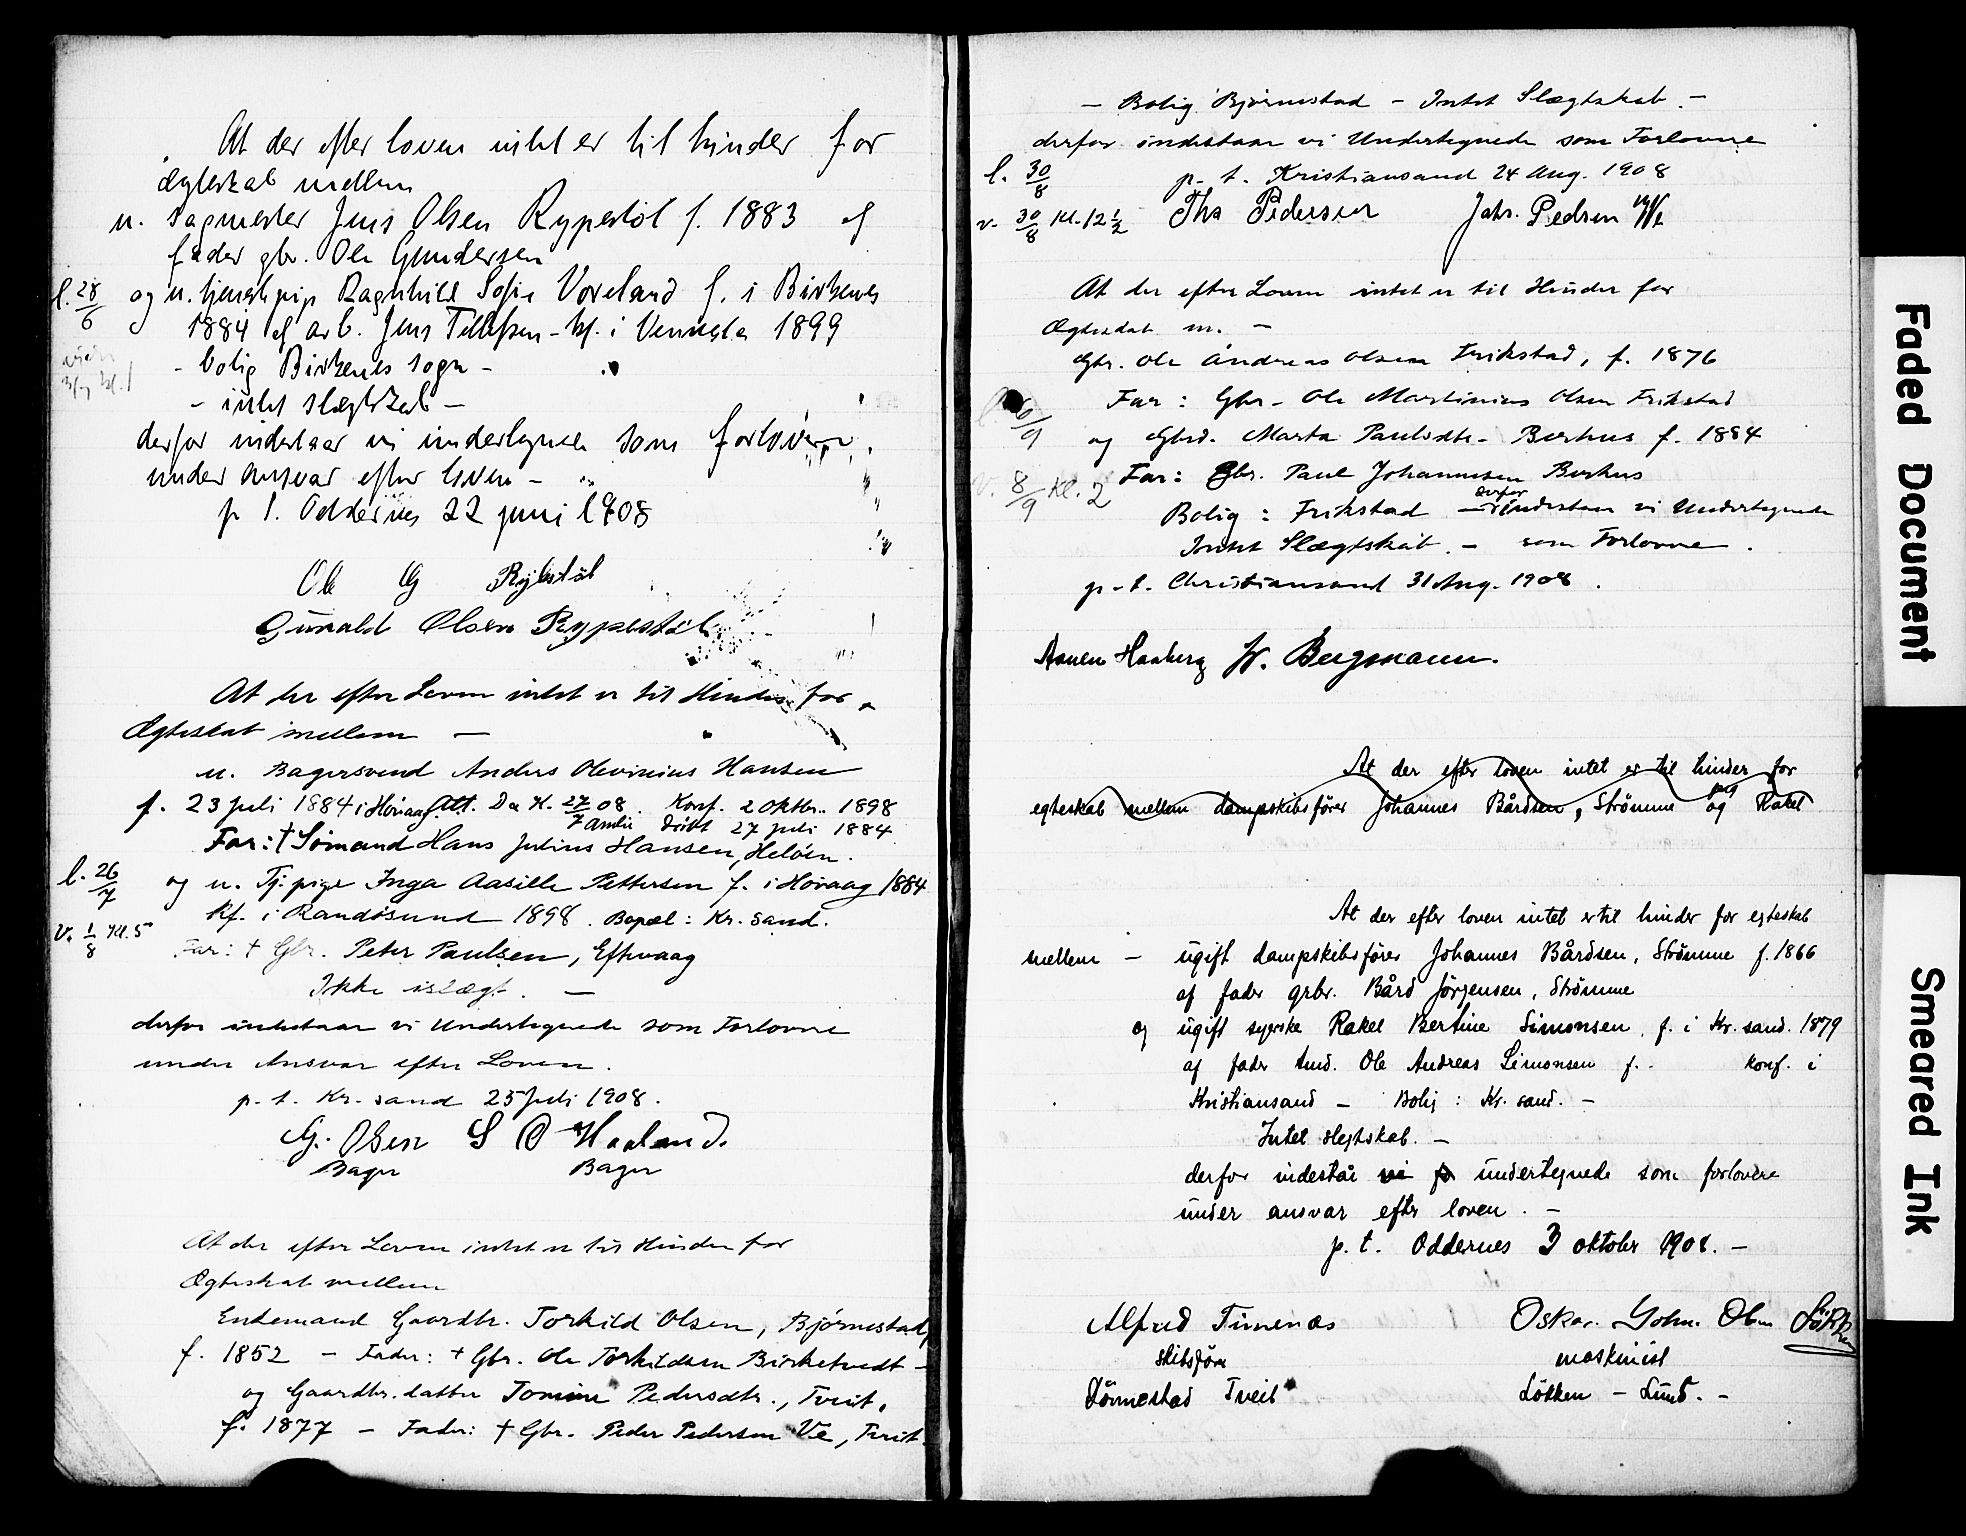 At der efter loven intet er til hinder for
ægteskab mellem
u. sagmester Jens Olsen Rypestöl f. 1883 af
fader gbr. Ole Gundersen
l. 28/6 og u. tjenestepige Ragnhild Sofie Voreland f. i Birkenes
1884 af arb. Jens Tellefsen - kf. i Vennesla 1899
- bolig Birkenes sogn -
- intet slægtskab -
derfor indestaar vi undertegnede som forlovere
under ansvar efter loven -
p t. Oddernes 22 juni 1908
Ole G Rypestöl
Gunvald Olsen Rypestöl
At der efter Loven intet er til Hinder for
Ægteskab mellem —
u. Bagersvend Anders Olevinius Hansen
f. 23 juli 1884 i Høvaag Att. Da K. 27/7 08. Konf. 2 Oktbr. 1898
døbt 27 juli 1884
Far: † Sømand Hans Julius Hansen, Heløen.
l. 26/7 og u. Tj. pige Inga Aasille Pettersen f. i Høvaag 1884
Kf. i Randøsund 1898. Bopæl: Kr. sand.
v. 1/8 Kl. 5 Far: † Gbr. Peter Paulsen, Eftevaag
Ikke i slægt. —
derfor indestaar vi Undertegnede som Forlovne
under Ansvar efter Loven.
p. t. Kr. sand 25 Juli 1908.
G. Olsen S O Haaland.
Bager Bager
At der efter Loven intet er til Hinder for
Ægteskab mellem
Enkemand Gaardbr. Torkild Olsen, Bjørnestad,
f. 1852 - Fader: † Gbr. Ole Torkildsen Birketvedt -
og Gaardbr. datter Tomine Pedersdtr., Tveit,
f. 1877 - Fader: † Gbr. Peder Pedersen Ve, Tveit -
- Bolig Bjørnestad - Intet Slægtskab. -
derfor indestaar vi Undertegnede som Forlovne
l. 30/8 p. t. Kristiansand 24 Aug. 1908
v. 30/8 Kl. 12 1/2 Ths Pedersen Johs. Pedersen Ve
At der efter Loven intet er til Hinder for
Ægteskab m. —
Gbr. Ole Andreas Olsen Frikstad, f. 1876
Far: Gbr. Ole Martinius Olsen Frikstad
l. 6/9 og Gbrd. Marta Paulsdtr. Berhus f. 1884
v. 8/9 Kl. 2 Far: Gbr. Paul Johannesen Berhus
Bolig: Frikstad — derfor indestaar vi Undertegnede
Intet Slægtskab. - som Forlovne.
p. t. Christiansand 31 Aug. 1908.
Asuen Haaberg W. Bergmann.
At der efter loven intet er til hinder for
egteskab mellem dampskibsfører Johannes Bårdsen, Strömme og pige Rakel
At der efter loven intet er til hinder for egteskab
mellem - ugift dampskibsfører Johannes Bårdsen, Strömme f. 1866
af fader grbr. Bård Jörgensen, Strömme
og ugift syerske Rakel Bertine Simonsen, f. i Kr. sand. 1879
af fader tmd. Ole Andreas Simonsen f. - konf. i
Kristiansand - Bolig: Kr. sand. -
Intet slegtskab. -
derfor indestår vi undertegnede som forlovere
under ansvar efter loven. -
p. t. Oddernes 3 oktober 1908. -
Alfred Timenes Oskar John Olsen Løkken
skibsfører maskinist
Dönnestad Tveit Løkken - Lund. -
Faded Document
Smeared Ink